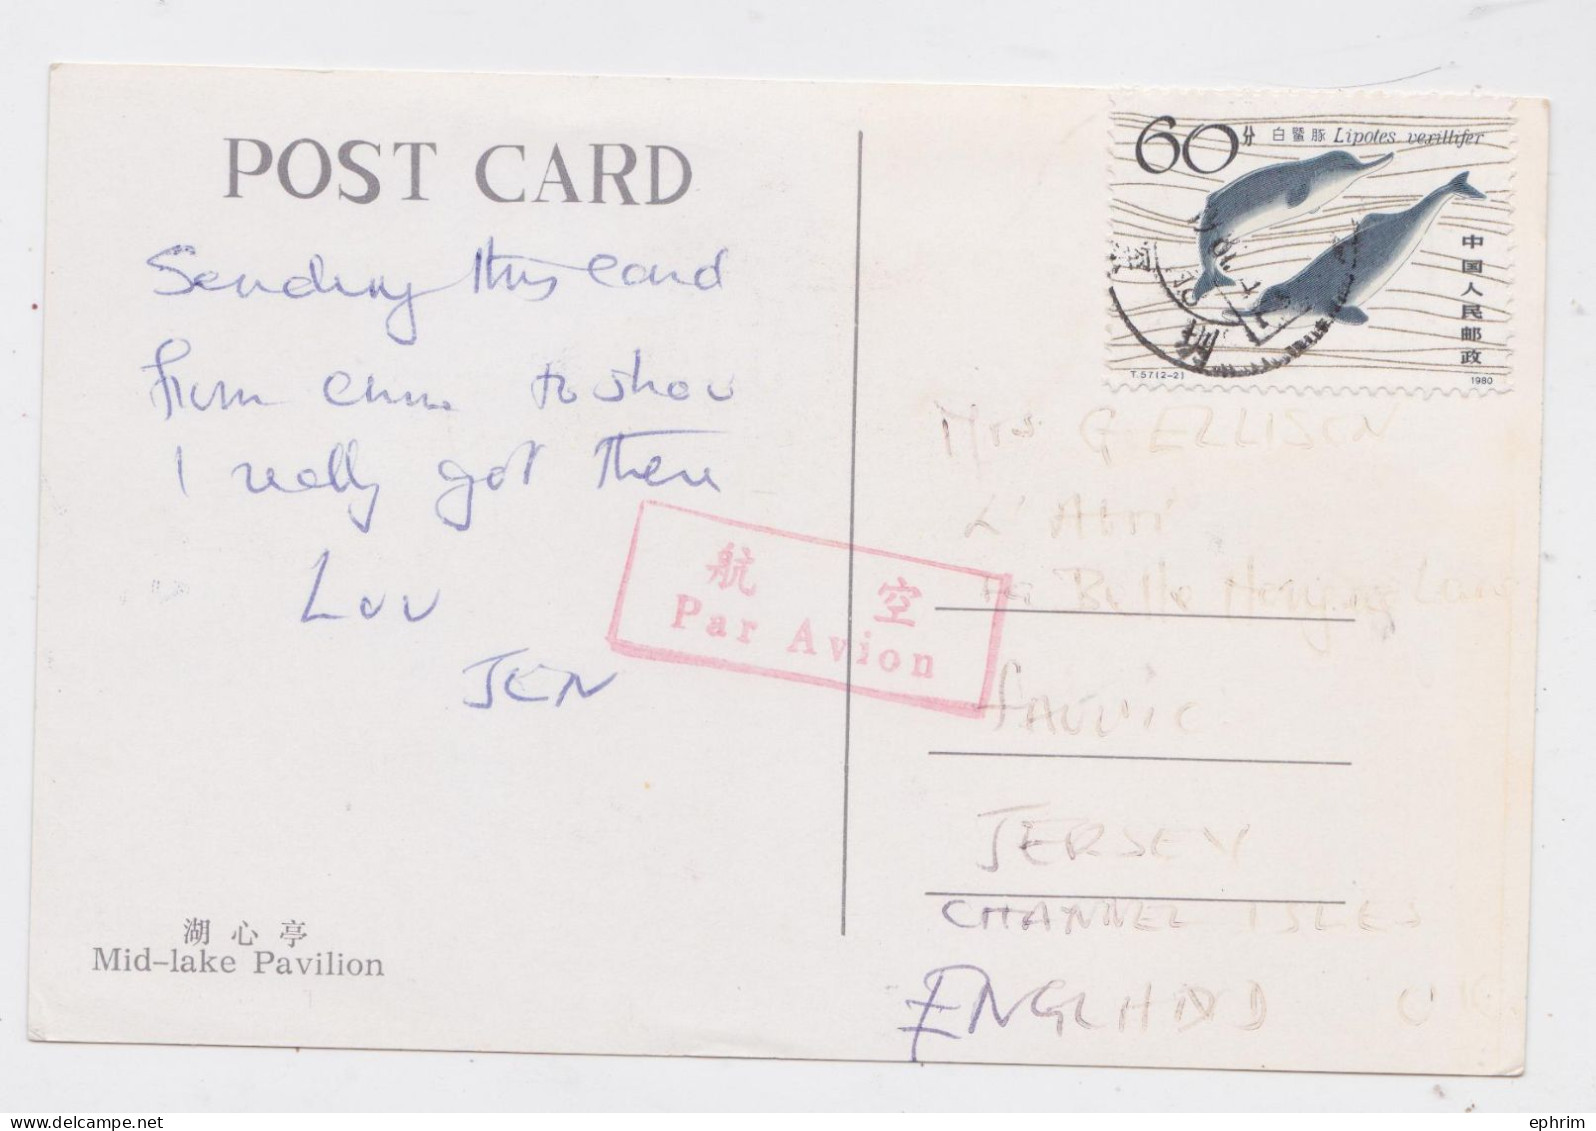 POST CARD
Sending this card
from China to show
I really got there
Luv
JEN
湖心亭
Mid-lake Pavilion
航 空
Par Avion
60分 白鱀豚 Lipotes vexillifer
中国人民邮政
T.57(2-2) 1980
Mrs G ELLISON
L'Abri
Lane
JERSEY
CHANNEL ISLES
ENGLAND UK
www.delcampe.net
ephrim